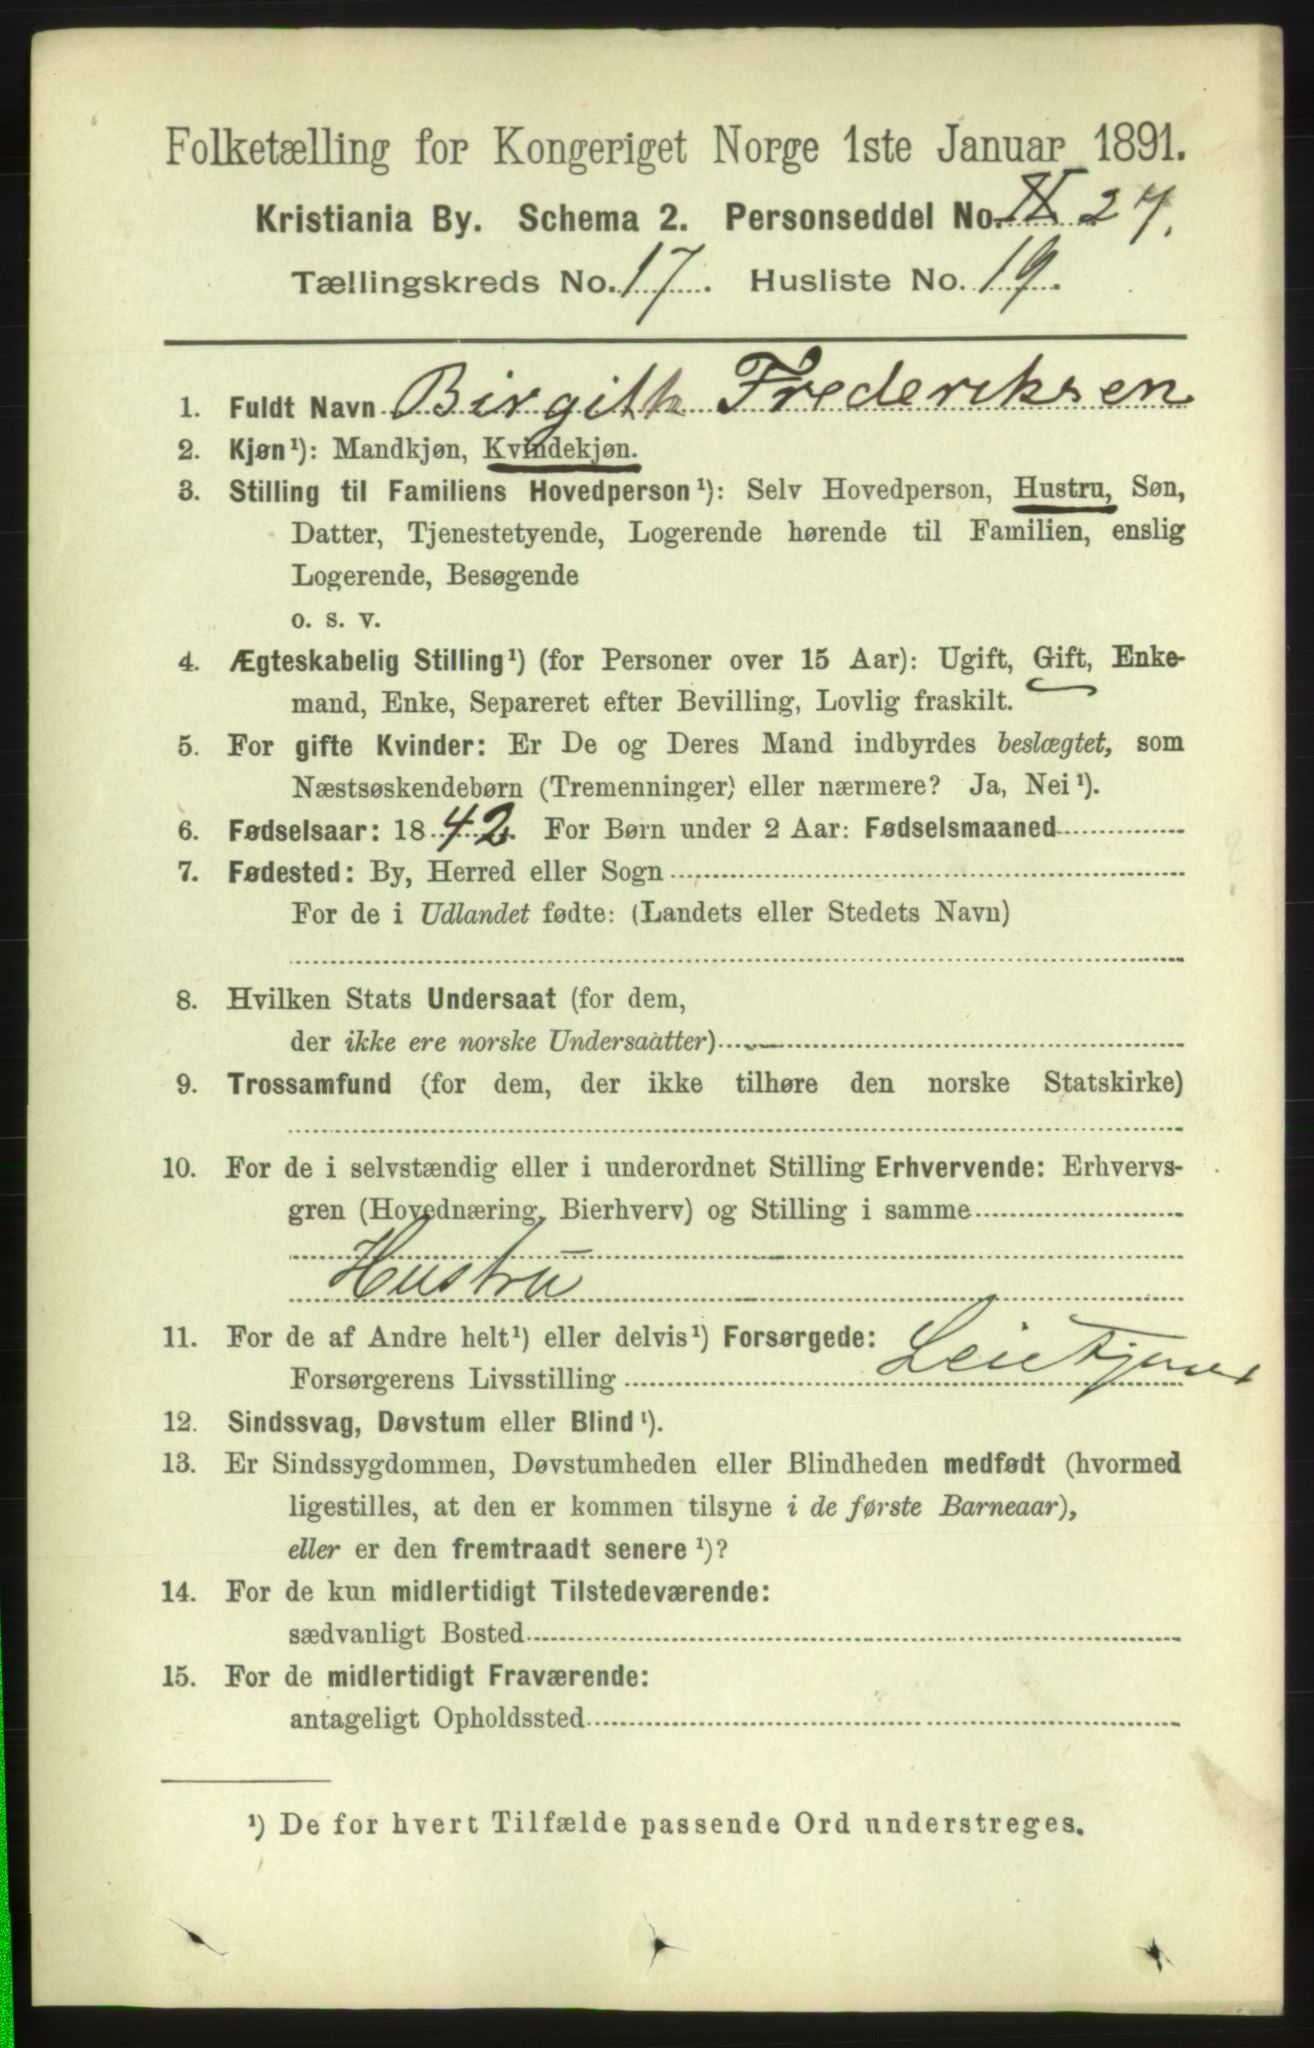 Folketælling for Kongeriget Norge 1ste Januar 1891.
Kristiania By. Schema 2. Personseddel No. 27.
Tællingskreds No. 17. Husliste No. 19.
1. Fuldt Navn Birgith Frederiksen
2. Kjøn¹): Mandkjøn, Kvindekjøn.
3. Stilling til Familiens Hovedperson¹): Selv Hovedperson, Hustru, Søn,
Datter, Tjenestetyende, Logerende hørende til Familien, enslig
Logerende, Besøgende
o. s. v.
4. Ægteskabelig Stilling¹) (for Personer over 15 Aar): Ugift, Gift, Enke-
mand, Enke, Separeret efter Bevilling, Lovlig fraskilt.
5. For gifte Kvinder: Er De og Deres Mand indbyrdes beslægtet, som
Næstsøskendebørn (Tremenninger) eller nærmere? Ja, Nei¹).
6. Fødselsaar: 1842. For Børn under 2 Aar: Fødselsmaaned
7. Fødested: By, Herred eller Sogn
For de i Udlandet fødte: (Landets eller Stedets Navn)
8. Hvilken Stats Undersaat (for dem,
der ikke ere norske Undersaatter)
9. Trossamfund (for dem, der ikke tilhøre den norske Statskirke)
10. For de i selvstændig eller i underordnet Stilling Erhvervende: Erhvervs-
gren (Hovednæring, Bierhverv) og Stilling i samme
Hustru
11. For de af Andre helt¹) eller delvis¹) Forsørgede:
Forsørgerens Livsstilling
12. Sindssvag, Døvstum eller Blind¹).
13. Er Sindssygdommen, Døvstumheden eller Blindheden medfødt (hvormed
ligestilles, at den er kommen tilsyne i de første Barneaar),
eller er den fremtraadt senere¹)?
14. For de kun midlertidigt Tilstedeværende:
sædvanligt Bosted
15. For de midlertidigt Fraværende:
antageligt Opholdssted
¹) De for hvert Tilfælde passende Ord understreges.